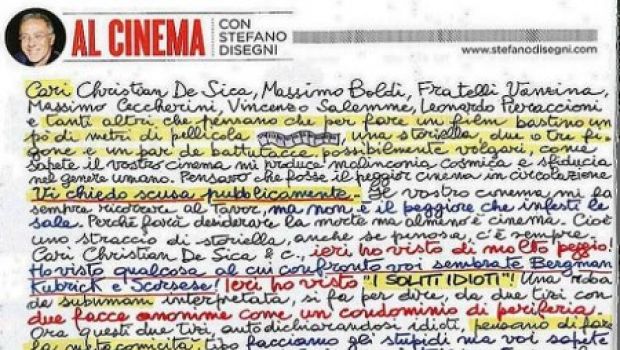 AL CINEMA
CON
STEFANO
DISEGNI
www.stefanodisegni.com
Cari Christian De Sica, Massimo Boldi, Fratelli Vanzina,
Massimo Ceccherini, Vincenzo Salemme, Leonardo Pieraccioni
e tanti altri che pensano che per fare un film bastino un
pò di metri di pellicola una storiella, due o tre fi-
gone e un par de battutacce possibilmente volgari, come
sapete il vostro cinema mi produce malinconia cosmica e sfiducia
nel genere umano. Pensavo che fosse il peggior cinema in circolazione
Vi chiedo scusa pubblicamente. Il vostro cinema mi fa
sempre ricorrere al Tavor, ma non è il peggiore che infesti le
sale. Perché farà desiderare la morte ma almeno è cinema. Cioè
uno straccio di storiella, anche se penosa, c'è sempre.
Cari Christian De Sica & c., ieri ho visto di molto peggio!
Ho visto qualcosa al cui confronto voi sembrate Bergman
Kubrick e Scorsese! Ieri ho visto "I SOLITI IDIOTI"! Una roba
da subumani interpretata, si fa per dire, da due tizi con
due facce anonime come un condominio di periferia.
Ora questi due tizi, autodichiarandosi idioti, pensano di fare
la metacomicità tipo facciamo gli stupidi ma voi sapete